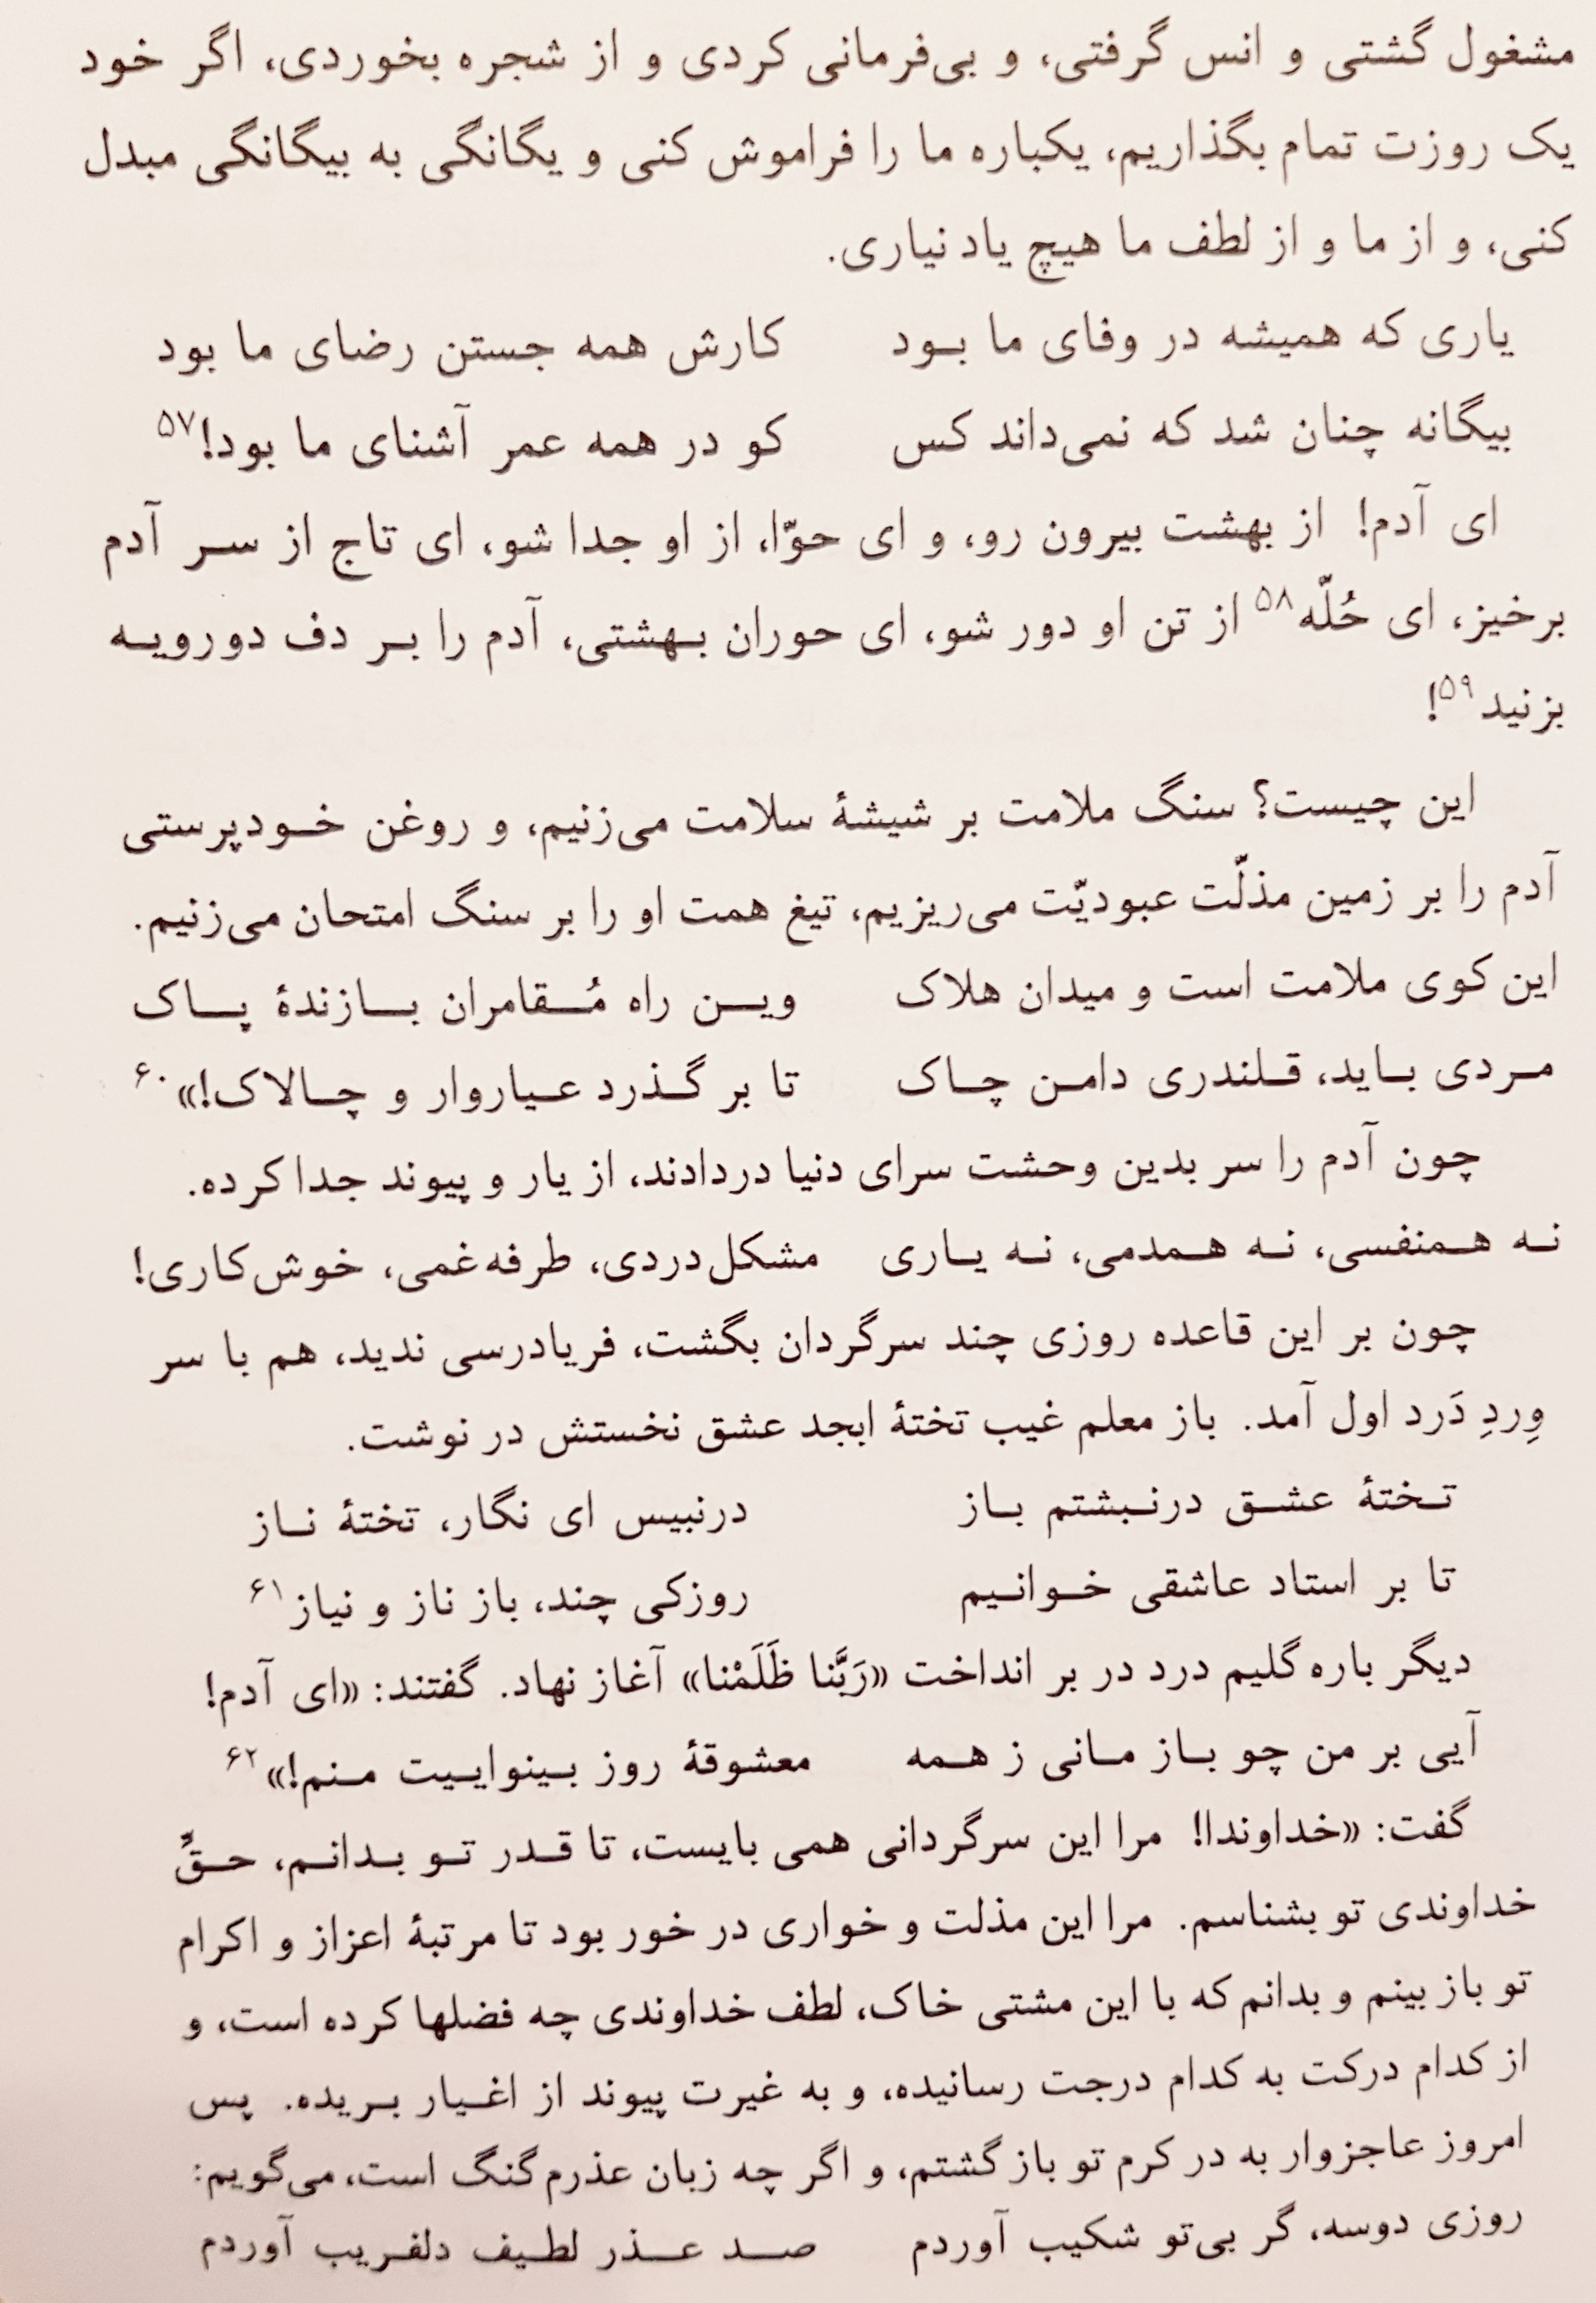 مشغول گشتی و انس گرفتی، و بی‌فرمانی کردی و از شجره بخوردی، اگر خود
یک روزت تمام بگذاریم، یکباره ما را فراموش کنی و یگانگی به بیگانگی مبدل
کنی، و از ما و از لطف ما هیچ یاد نیاری.
یاری که همیشه در وفای ما بود کارش همه جستن رضای ما بود
بیگانه چنان شد که نمی‌داند کس کو در همه عمر آشنای ما بود!۵۷
ای آدم! از بهشت بیرون رو، و ای حوّا، از او جدا شو، ای تاج از سر آدم
برخیز، ای حُلّه۵۸ از تن او دور شو، ای حوران بهشتی، آدم را بر دف دورویه
بزنید۵۹!
این چیست؟ سنگ ملامت بر شیشهٔ سلامت می‌زنیم، و روغن خودپرستی
آدم را بر زمین مذلّت عبودیّت می‌ریزیم، تیغ همت او را بر سنگ امتحان می‌زنیم.
این کوی ملامت است و میدان هلاک وین راه مُقامران بازندهٔ پاک
مردی باید، قلندری دامن چاک تا بر گذرد عیاروار و چالاک!»۶۰
چون آدم را سر بدین وحشت سرای دنیا دردادند، از یار و پیوند جدا کرده.
نه همنفسی، نه همدمی، نه یاری مشکل‌دردی، طرفه‌غمی، خوش‌کاری!
چون بر این قاعده روزی چند سرگردان بگشت، فریادرسی ندید، هم با سر
وِردِ دَرد اول آمد. باز معلم غیب تختهٔ ابجد عشق نخستش در نوشت.
تختهٔ عشق درنبشتم باز درنبیس ای نگار، تختهٔ ناز
تا بر استاد عاشقی خوانیم روزکی چند، باز ناز و نیاز۶۱
دیگر باره گلیم درد در بر انداخت «رَبَّنا ظَلَمْنا» آغاز نهاد. گفتند: «ای آدم!
آیی بر من چو باز مانی ز همه معشوقهٔ روز بینواییت منم!»۶۲
گفت: «خداوندا! مرا این سرگردانی همی بایست، تا قدر تو بدانم، حقِّ
خداوندی تو بشناسم. مرا این مذلت و خواری در خور بود تا مرتبهٔ اعزاز و اکرام
تو باز بینم و بدانم که با این مشتی خاک، لطف خداوندی چه فضلها کرده است، و
از کدام درکت به کدام درجت رسانیده، و به غیرت پیوند از اغیار بریده. پس
امروز عاجزوار به در کرم تو باز گشتم، و اگر چه زبان عذرم گنگ است، می‌گویم:
روزی دوسه، گر بی‌تو شکیب آوردم صد عذر لطیف دلفریب آوردم